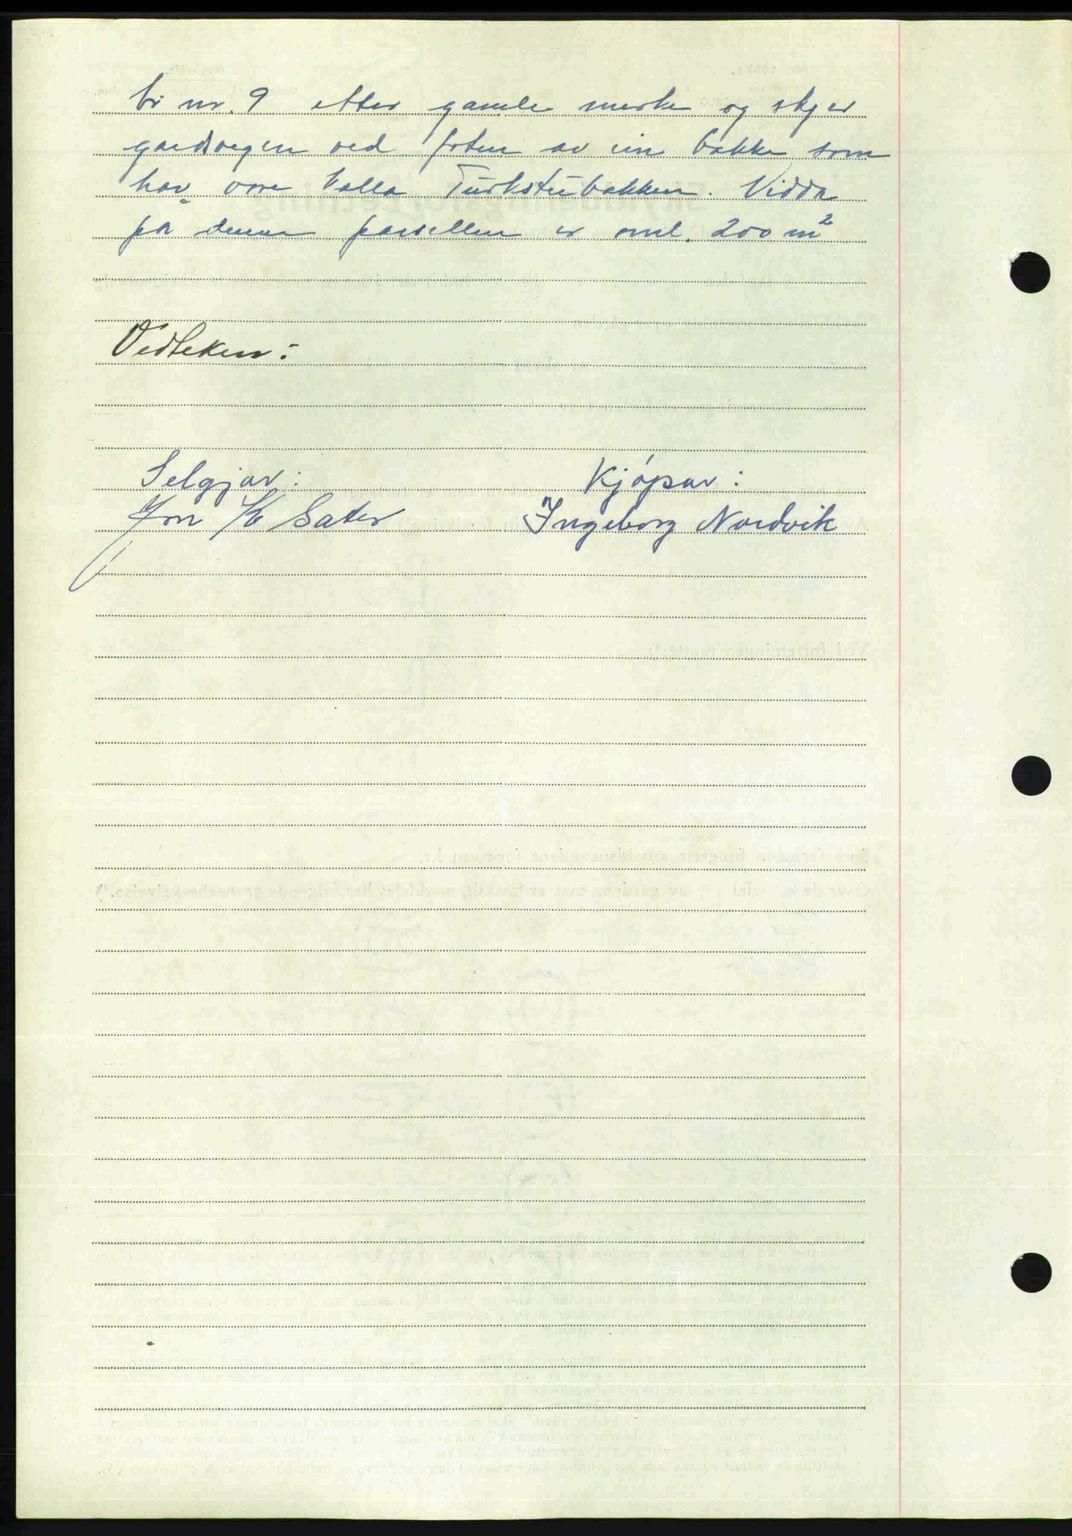 br nr. 9 etter gamle merke og skjer
gardsvegen ved foten av ein bakke som
har vore kalla Turkstubakken. Vidda
på denne parsellen er oml. 200 m²
Vedteken:
Seljar: Kjøpar:
Jon K Sæter Ingeborg Nordvik